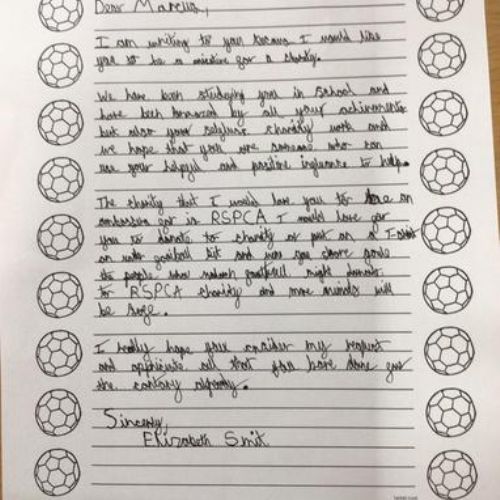 Dear Marcus,
I am writing to you because I would like
you to be a for a charity.
We have been studying you in school and
have been by all your achievements
but also your selfless charity work and
we hope that you are someone who can
use your helpful and positive to help.
The charity that I would love you to be an
for is RSPCA I would love for
you to donate to charity or put on a T-shirt
an under football kit and you score goals
the people who watch football might donate
to RSPCA charity and more animals will
be safe.
I really hope you consider my request
and all that you have done for
the already.
Sincerly,
Elizabeth Smit